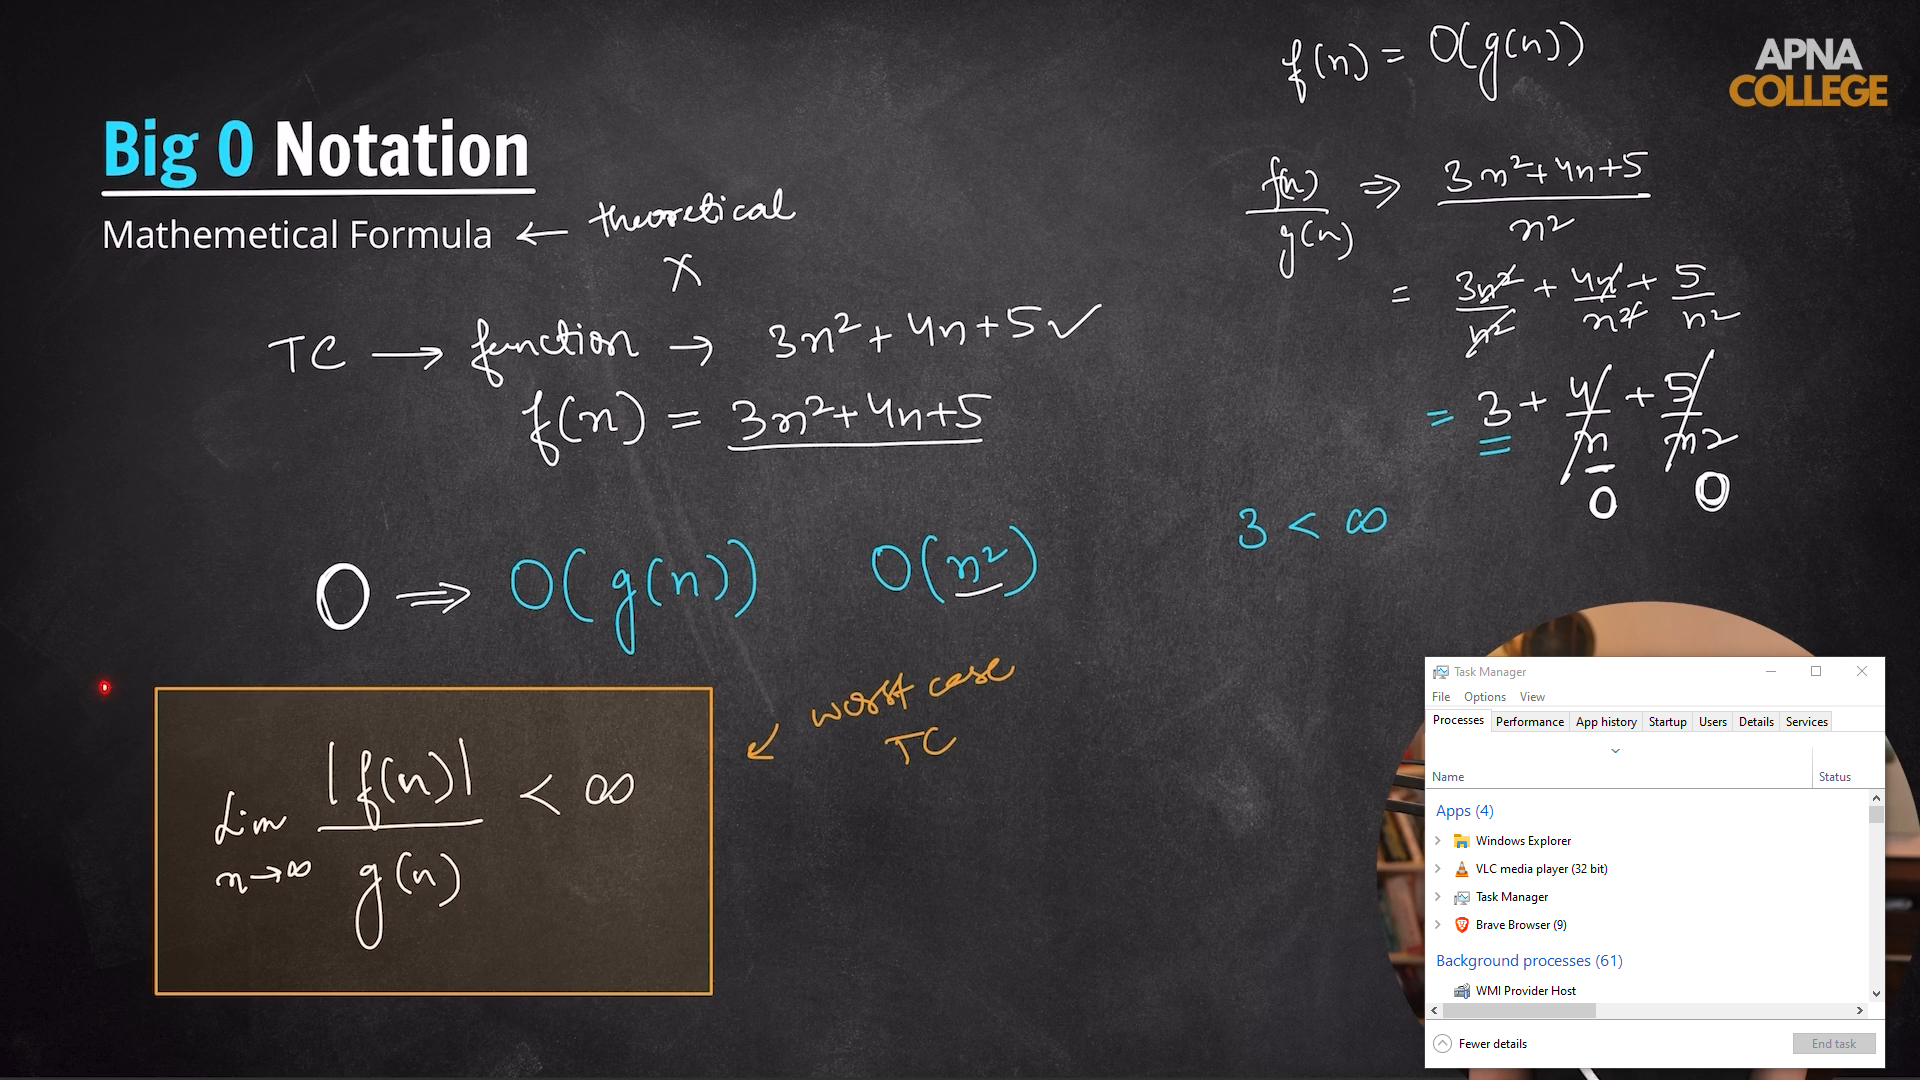 f(n) = O(g(n))
APNA
COLLEGE
Big O Notation
Mathemetical Formula ← theoretical
X
TC → function → 3n²+4n+5 ✓
f(n) = 3n²+4n+5
f(n)/g(n) ⇒ (3n²+4n+5)/n²
= 3n²/n² + 4n/n² + 5/n²
= 3 + 4/n + 5/n²
0 0
3 < ∞
O ⇒ O(g(n)) O(n²)
worst case
TC
Lim n→∞ |f(n)|/g(n) < ∞
Task Manager
File Options View
Processes Performance App history Startup Users Details Services
Name Status
Apps (4)
Windows Explorer
VLC media player (32 bit)
Task Manager
Brave Browser (9)
Background processes (61)
WMI Provider Host
Fewer details End task